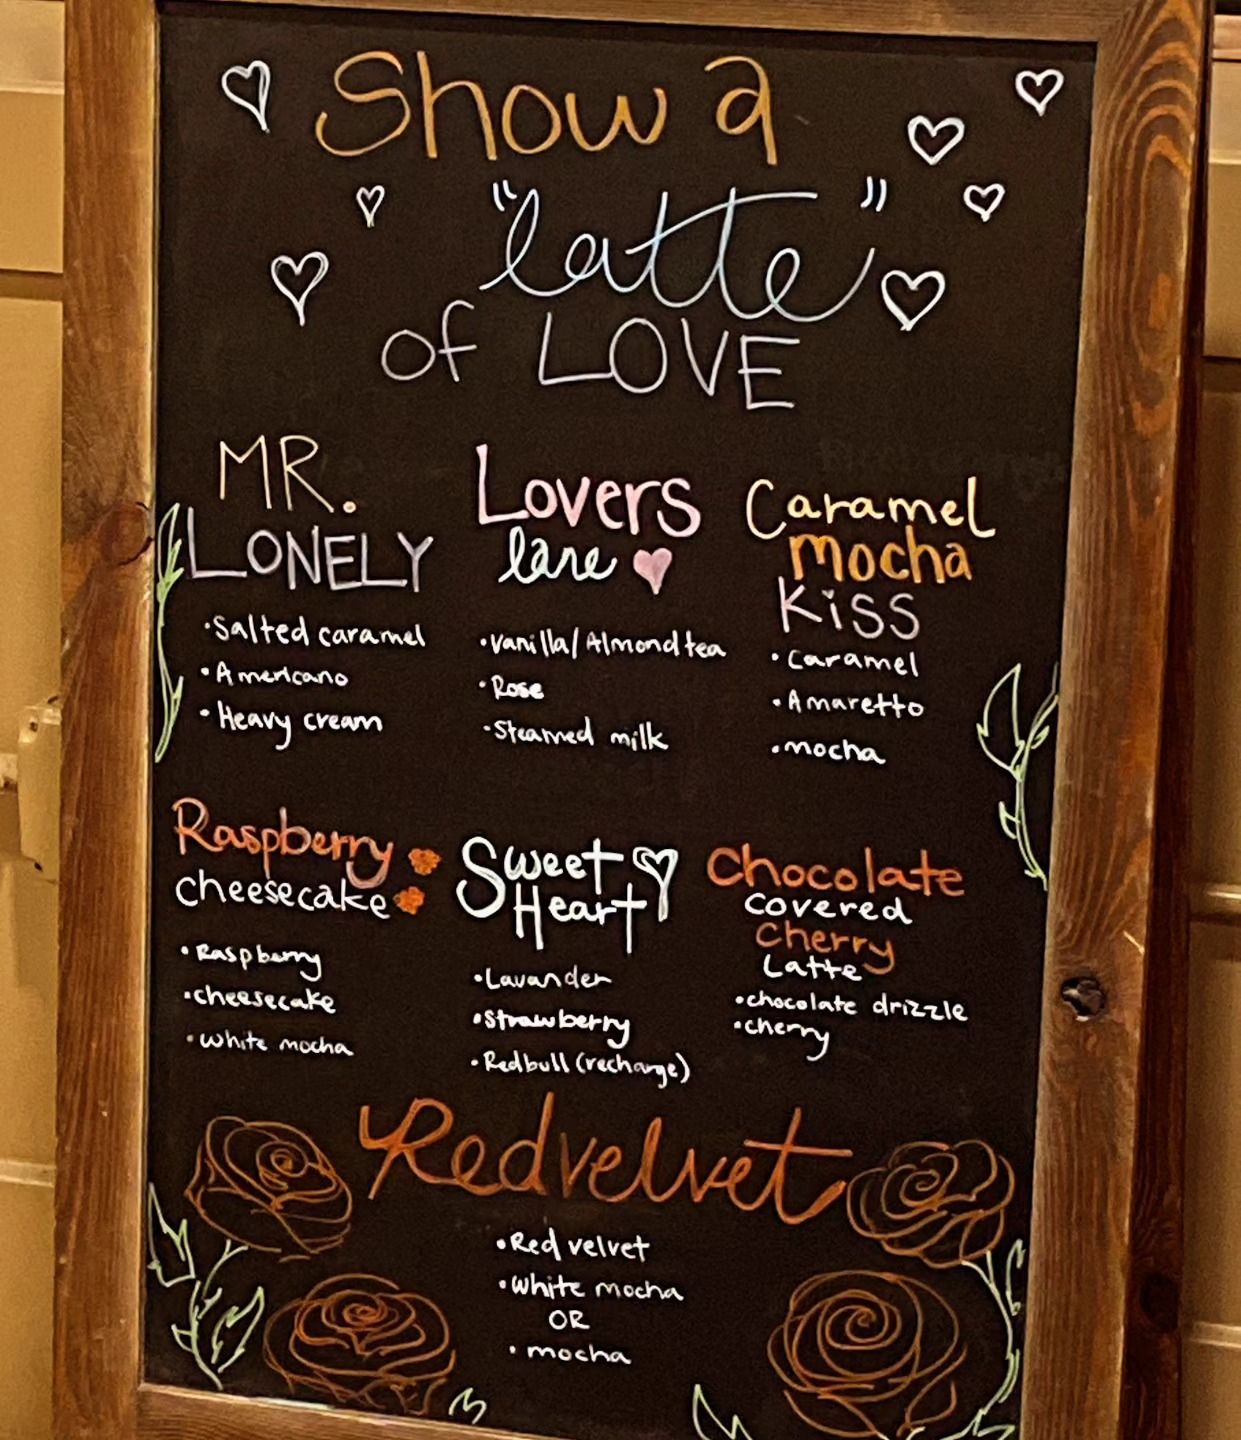 Show a
"latte"
of LOVE
MR.
LONELY
• Salted caramel
• Americano
• Heavy cream
Lovers
lane
• Vanilla/Almond tea
• Rose
• Steamed milk
Caramel
mocha
Kiss
• Caramel
• Amaretto
• mocha
Raspberry
cheesecake
• Raspberry
• cheesecake
• White mocha
Sweet
Heart
• Lavander
• Strawberry
• Redbull (recharge)
Chocolate
covered
cherry
Latte
• chocolate drizzle
• cherry
Redvelvet
• Red velvet
• White mocha
OR
• mocha